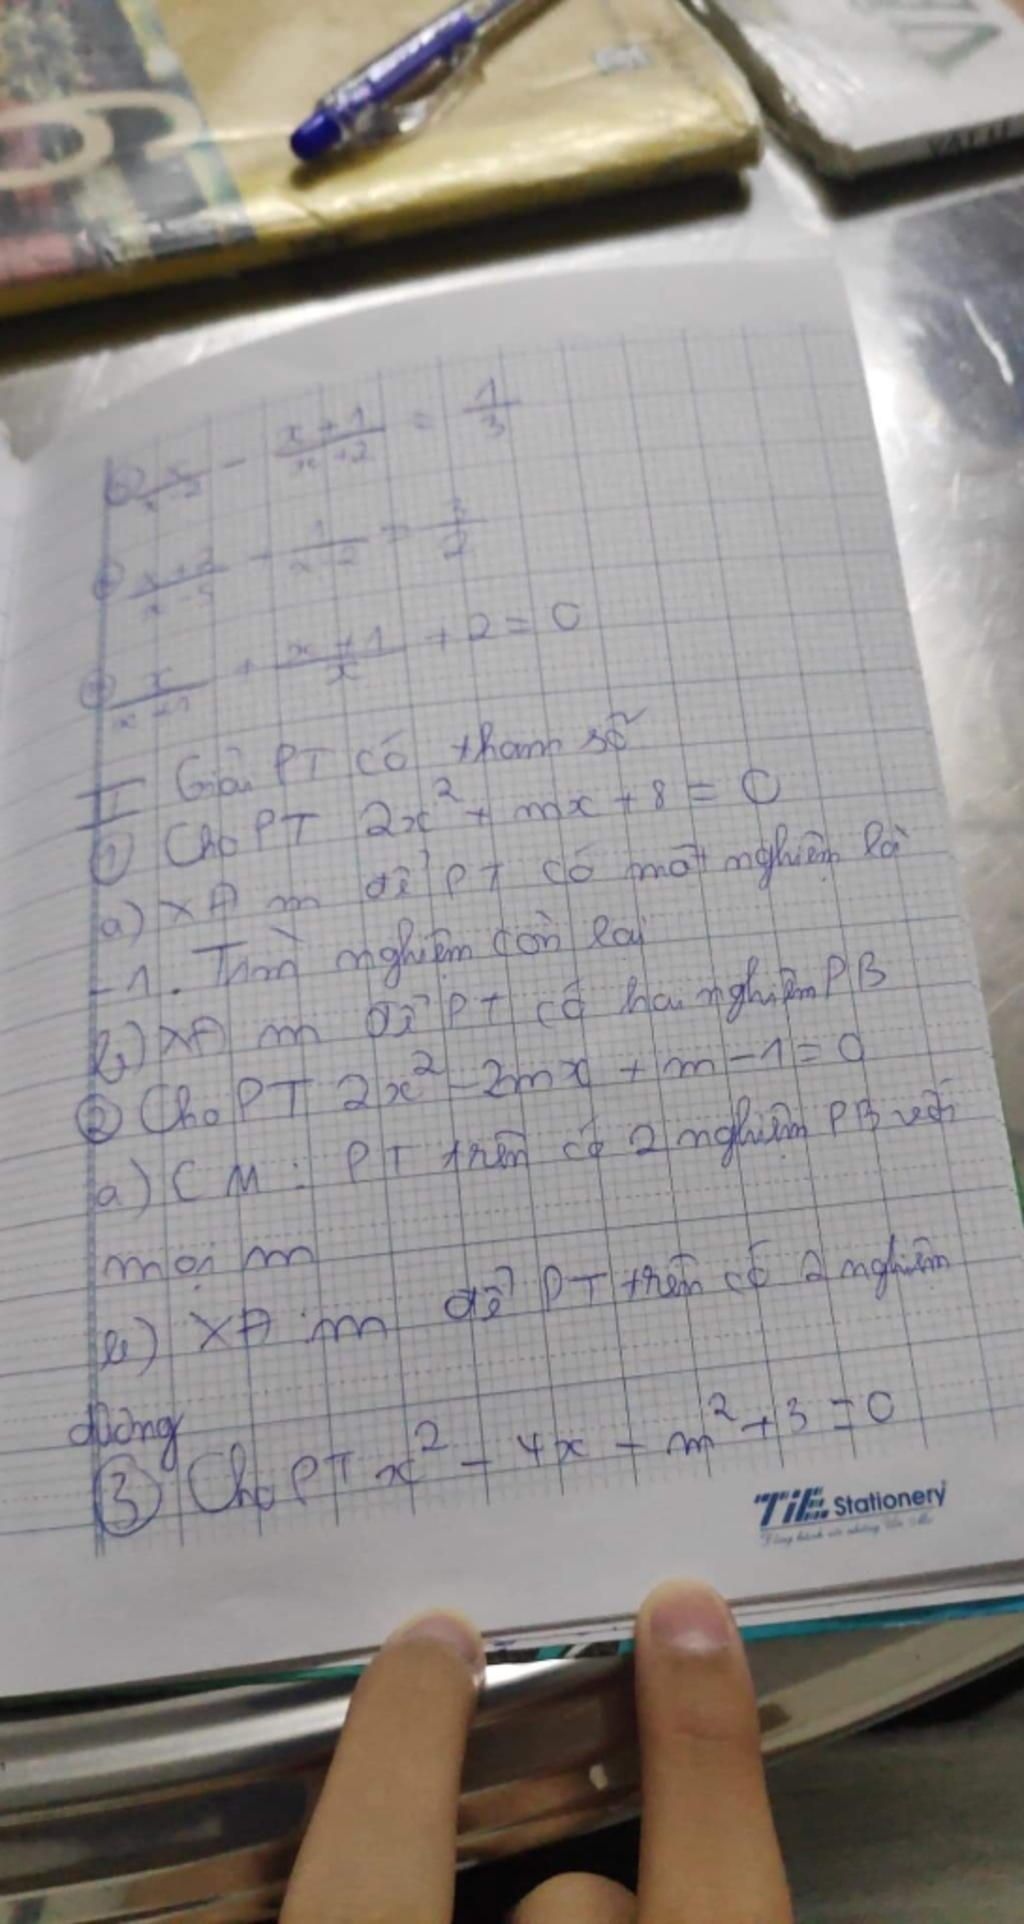 x/x-2 - x+1/x+2 = 1/3
- 1/x-2 =
x/x+1 + x+1/x + 2 = 0
I Giải PT có tham số
① Cho PT 2x² + mx + 8 = 0
a) XĐ m để PT có một nghiệm là
-1. Tìm nghiệm còn lại
b) XĐ m để PT có hai nghiệm PB
② Cho PT 2x² - 2mx + m - 1 = 0
a) CM: PT trên có 2 nghiệm PB với
mọi m
b) XĐ m để PT trên có 2 nghiệm
dương
③ Cho PT x² - 4x - m² + 3 = 0
TiE Stationery